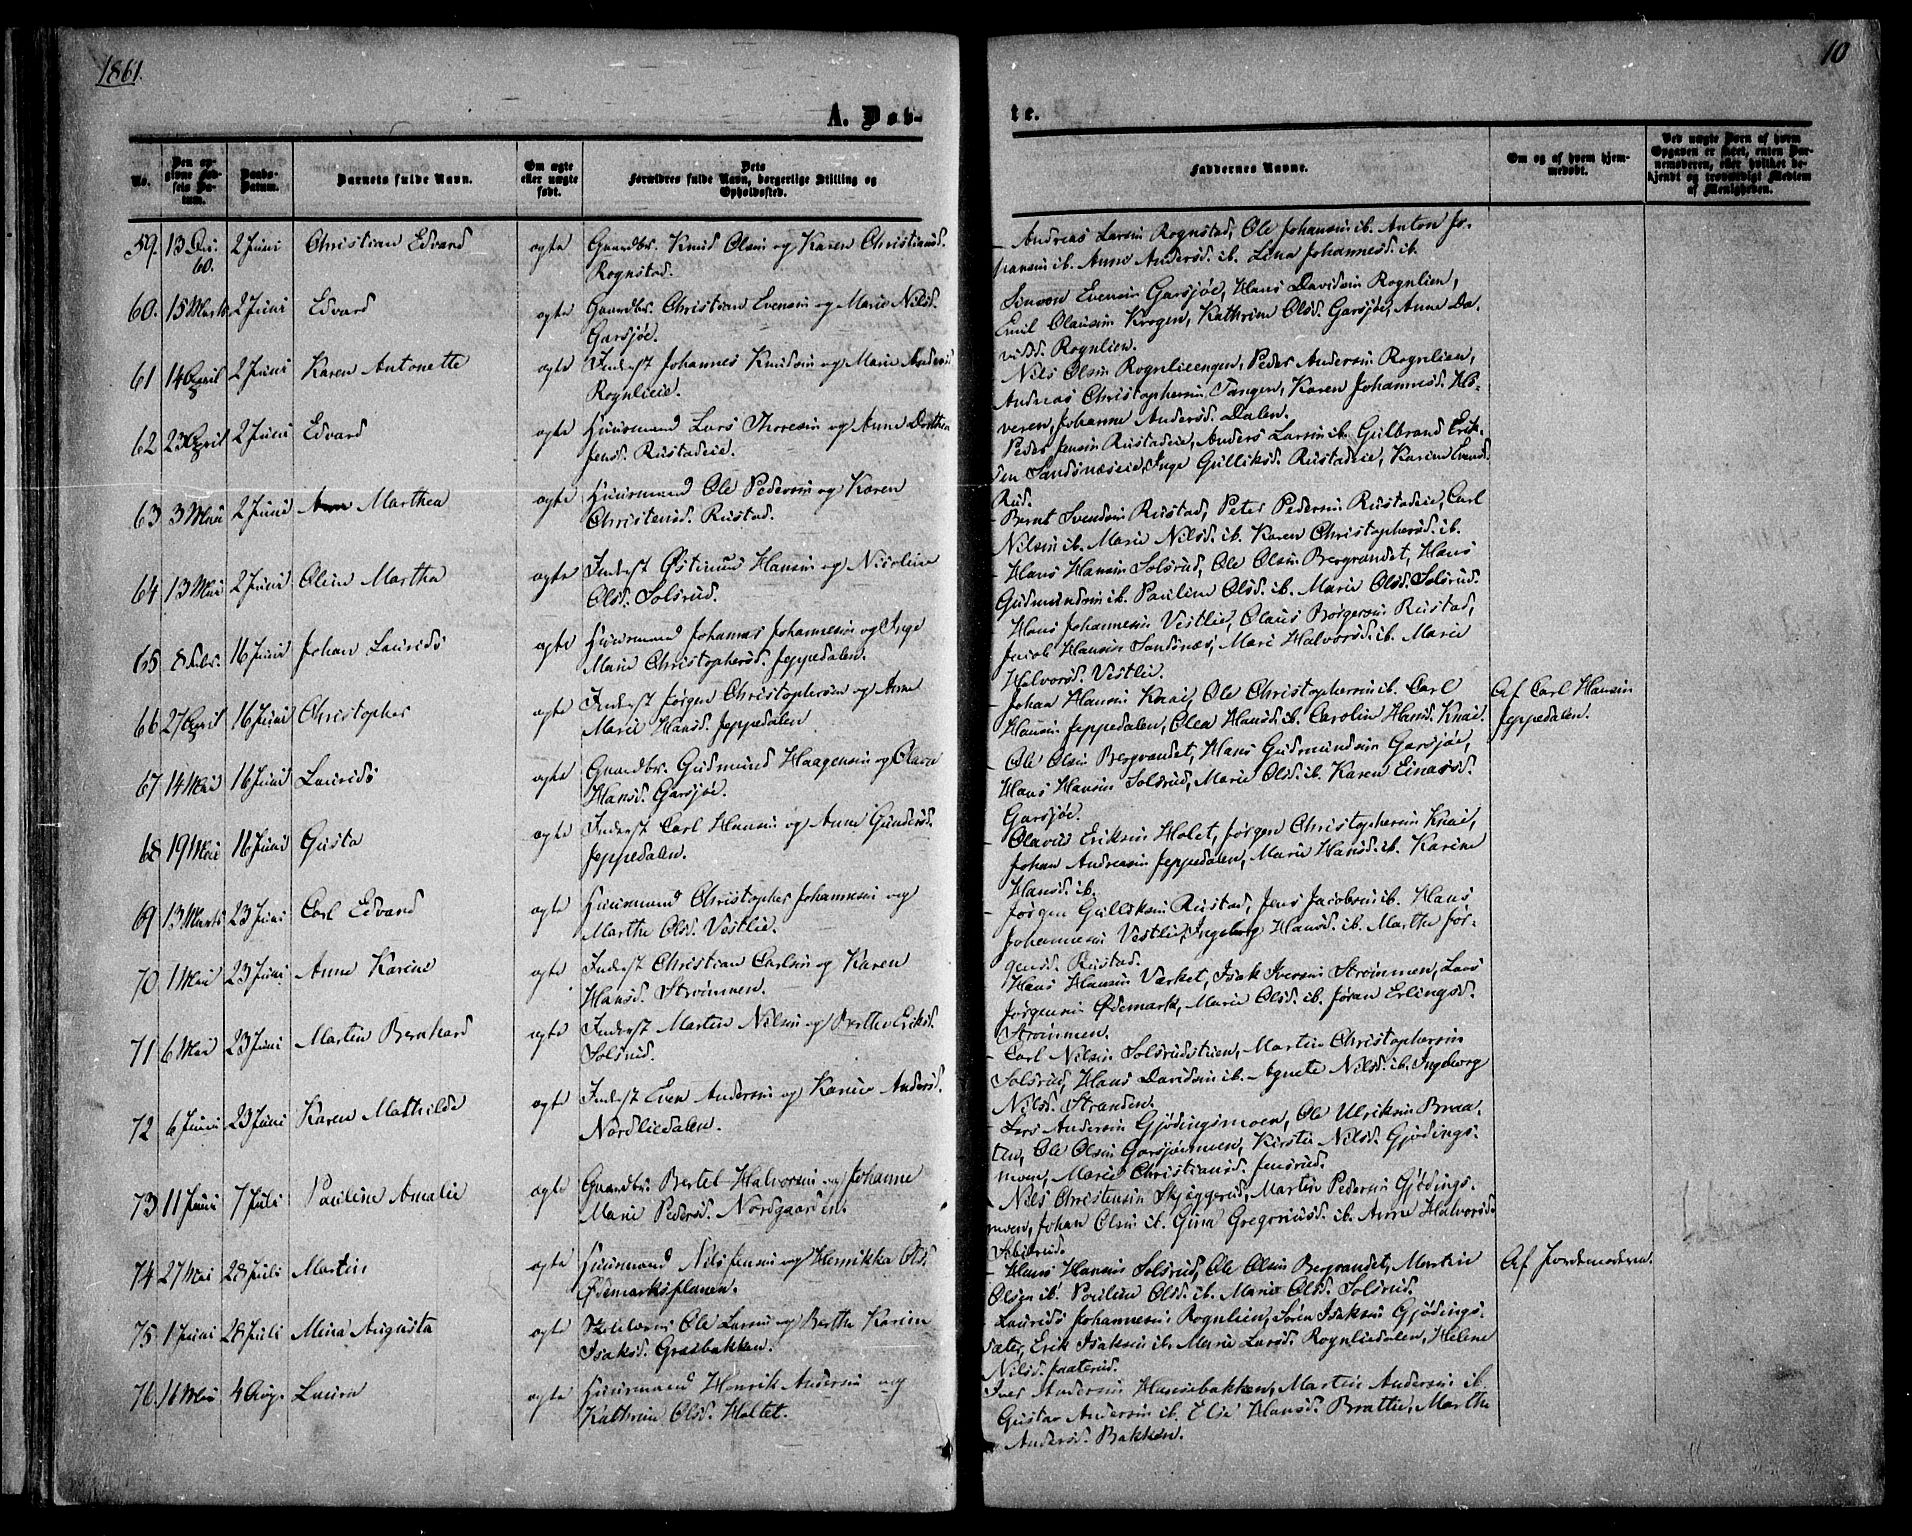 1861.
10
A. Døb-
te.
No.
Den op-
givne Fød-
sels Da-
tum.
Daabs-
Datum.
Barnets fulde Navn.
Om ægte
eller uægte
født.
Dets
Forældres fulde Navn, borgerlige Stilling og
Opholdssted.
Faddernes Navne.
Om og af hvem hjem-
medøbt.
Ved uægte Børn af hvem
Opgaven er skeet, enten Bar-
nemoderen, eller hvilket be-
kjendt og troværdigt Medlem
af Menigheden.
59. 13 Dec. 60. 2 Juni Christian Edvard ægte Gaardbr. Knud Olsen og Karen Christiansd.
Rognstad.
Andreas Larsen Rognstad, Ole Johansen ib. Anton Jo-
hansen ib. Anne Andersd. ib. Lina Johannesd. ib.
60. 15 Marts 2 Juni Edvard ægte Gaardbr. Christian Evensen og Marie Nilsd.
Garsjøe.
Simon Evensen Garsjøe, Hans Davidsen Rognlien,
Emil Olausen Krogen, Kathrine Olsd. Garsjøe, Anne Da-
vidsd. Rognlien.
61 14 April 2 Juni Karen Antonette ægte Inderst Johannes Knudsen og Marie Andersd.
Rognlieie.
Nils Olsen Rognlieengen, Peder Andersen Rognlien,
Andreas Christophersen Tangen, Karen Johannesd. Ho-
veren, Johanne Andersd. Dalen.
62 23 April 2 Juni Edvard ægte Huusmand Lars Thoresen og Anne Dorthea
Jensd. Rustadeie.
Peder Jensen Rustadeie, Anders Larsen ib. Gulbrand Erik-
sen Sandsnæseie, Inge Gulliksd. Rustadeie, Karine Evensd.
Rud.
63 3 Mai 2 Juni Marthea ægte Huusmand Ole Pedersen og Karen
Christensd. Rustad.
Bernt Svendsen Rustad, Peter Pedersen Rustadeie, Carl
Nilsen ib. Marie Nilsd. ib. Karen Christophersd. ib.
64 13 Mai 2 Juni Oline Martha ægte Inderst Østmund Hansen og Nicoline
Olsd. Solsrud.
Hans Hansen Solsrud, Ole Olsen Bergvandet, Hans
Gudmundsen ib. Pauline Olsd. ib. Marie Olsd. Solsrud.
65 8 Febr. 16 Juni Johan Laurids ægte Huusmand Johannes Johannesen og Inge
Marie Christophersd. Jeppedalen.
Hans Johannesen Vestlie, Olaus Børgersen Rustad,
Jacob Hansen Sandsnæs, Mari Halvorsd. ib. Marie
Halvorsd. Vestlie.
66 27 April 16 Juni Christopher ægte Inderst Jørgen Christophersen og Anne
Marie Hansd. Jeppedalen
Johan Hansen Knai, Ole Christophersen ib. Carl
Hansen Jeppedalen, Olea Hansd. ib. Caroline Hansd. Knai.
Af Carl Hansen
Jeppedalen.
67 14 Mai 16 Juni Laurids ægte Gaardbr. Gudmund Haagensen og Olava
Hansd. Garsjøe.
Ole Olsen Bergvandet, Hans Gudmundsen Garsjøe,
Hans Hansen Solsrud, Marie Olsd. ib. Karen Einarsd.
Garsjøe.
68 19 Mai 16 Juni Gusta ægte Inderst Carl Hansen og Anne Gundersd.
Jeppedalen.
Olavus Eriksen Holet, Jørgen Christophersen Knai,
Johan Andreasen Jeppedalen, Marie Hansd. ib. Karine
Hansd. ib.
69 13 Marts 23 Juni Carl Edvard ægte Huusmand Christopher Johannesen og
Marthe Olsd. Vestlie.
Jørgen Gulliksen Rustad, Jens Jacobsen ib. Hans
Johannesen Vestlie, Ingeborg Hansd. ib. Marthe Jør-
gensd. Rustad.
70 1 Mai 23 Juni Anne Karine ægte Inderst Christian Carlsen og Karen
Hansd. Strømmen.
Hans Hansen Værket, Isak Iversen Strømmen, Lars
Jørgensen Ødemark, Marie Olsd. ib. Jøran Erlingsd.
Strømmen.
71 6 Mai 23 Juni Martin Bernhard ægte Inderst Martin Nilsen og Berthe Eriksd.
Solsrud.
Carl Nilsen Solsrudstuen, Martin Christophersen
Solsrud, Hans Davidsen ib. Agnete Nilsd. ib. Ingeborg
Nilsd. Stranden.
72 6 Juni 23 Juni Karen Mathilde ægte Inderst Even Andersen og Karine Andersd.
Nordliedalen.
Lars Andersen Gjødingsmoen, Ole Ulriksen Braa-
ten, Ole Olsen Garsjømoen, Kirstie Nilsd. Gjødings-
moen, Marie Christiansd. Jensrud.
73 11 Juni 7 Juli Pauline Amalie ægte Gaardbr. Bertel Halvorsen og Johanne
Marie Pedersd. Nordgaarden.
Nils Christensen Skjæggerud, Martin Pedersen Gjødings-
moen, Johan Olsen ib. Gina Gregoriusd. ib. Anne Halvorsd.
74 27 Mai 28 Juli Martin ægte Huusmand Nils Jensen og Henrikka Olsd.
Ødemarksplanen.
Hans Hansen Solsrud, Ole Olsen Bergvandet, Martin
Olsen ib. Pauline Olsd. ib. Marie Olsd. Solsrud.
Af Jordemoderen.
75 1 Juni 28 Juli Mina Augusta ægte Skolelærer Ole Larsen og Berthe Karine
Isaksd. Græsbakken.
Laurids Johannesen Rognlien, Søren Isaksen Gjødings-
sæter, Erik Isaksen ib. Marie Larsd. Rognliedalen, Helene
Nilsd. Kaaterud.
76 16 Mai 4 Aug. Laura ægte Huusmand Henrik Andersen og
Kathrine Olsd. Holtet.
Iver Andersen Hansebakken, Martin Andersen ib
Gustav Andersen ib. Else Hansd. Brattie, Marthe
Andersd. Bakken.